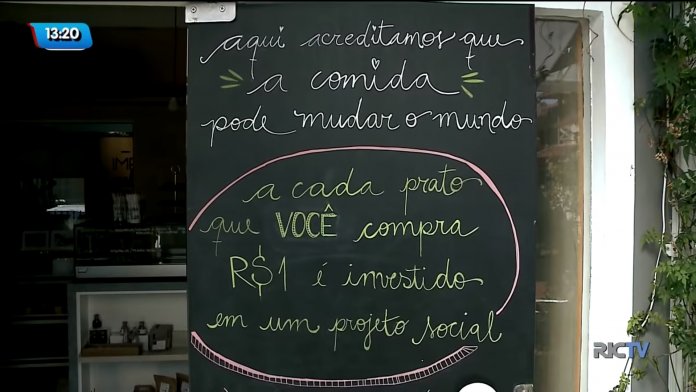 13:20
aqui acreditamos que
a comida
pode mudar o mundo
a cada prato
que VOCÊ compra
R$1 é investido
em um projeto social
RICTV